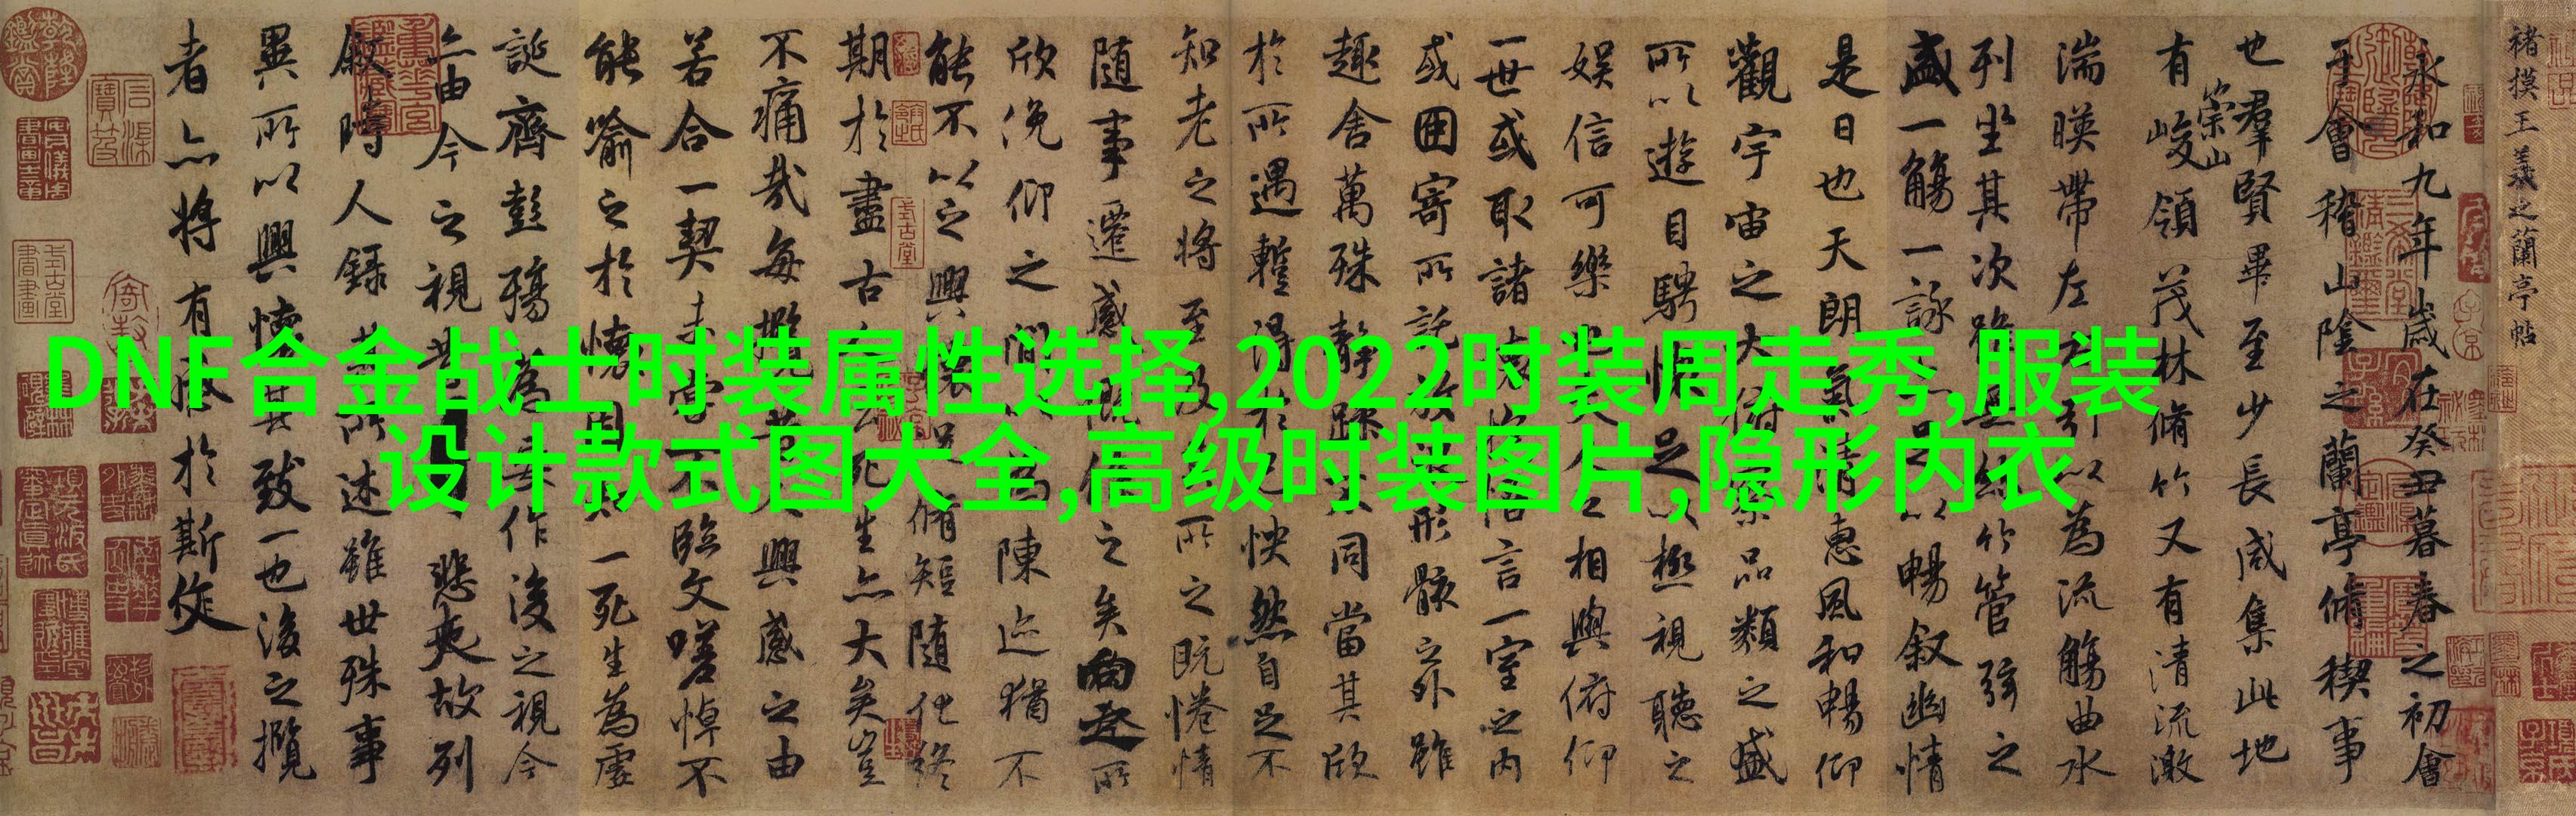 DNF合金战士时装属性选择,2022时装周走秀,服装
设计款式图大全,高级时装图片,隐形内衣
褚摸王羲之蘭亭帖
永和九年歲在癸丑暮春之初會
于會稽山陰之蘭亭脩稧事
也羣賢畢至少長咸集此地
有崇山峻領茂林脩竹又有清流激
湍暎帶左右引以為流觴曲水
列坐其次雖無絲竹管弦之
盛一觴一詠足以暢叙幽情
是日也天朗氣清惠風和暢仰
觀宇宙之大俯察品類之盛
所以遊目騁懷足以極視聽之
娛信可樂也夫人之相與俯仰
一世或取諸懷抱悟言一室之內
或因寄所託放浪形骸之外雖
趣舍萬殊靜躁不同當其欣
於所遇蹔得於己怏然自足不
知老之將至及其所之既惓情
隨事遷感慨係之矣向之所
欣俛仰之閒以為陳迹猶不
能不以之興懷況脩短隨化終
期於盡古人云死生亦大矣豈
不痛哉每攬昔人興感之由
若合一契未嘗不臨文嗟悼不
能喻之於懷固知一死生為虛
誕齊彭殤為妄作後之視今
亦由今之視昔悲夫故列
叙時人錄其所述雖世殊事
異所以興懷其致一也後之攬
者亦將有感於斯文